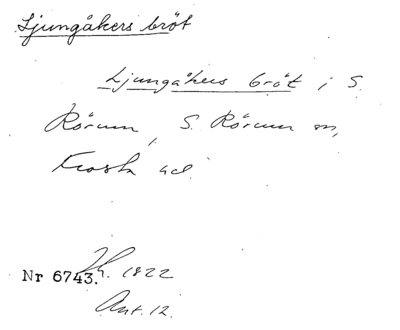 Ljungåkers bröt
Ljungåkers bröt i S.
Rörum, S. Rörum sn,
Frosta hd.
Nr 6743. Lh. 1822
Ant. 12.